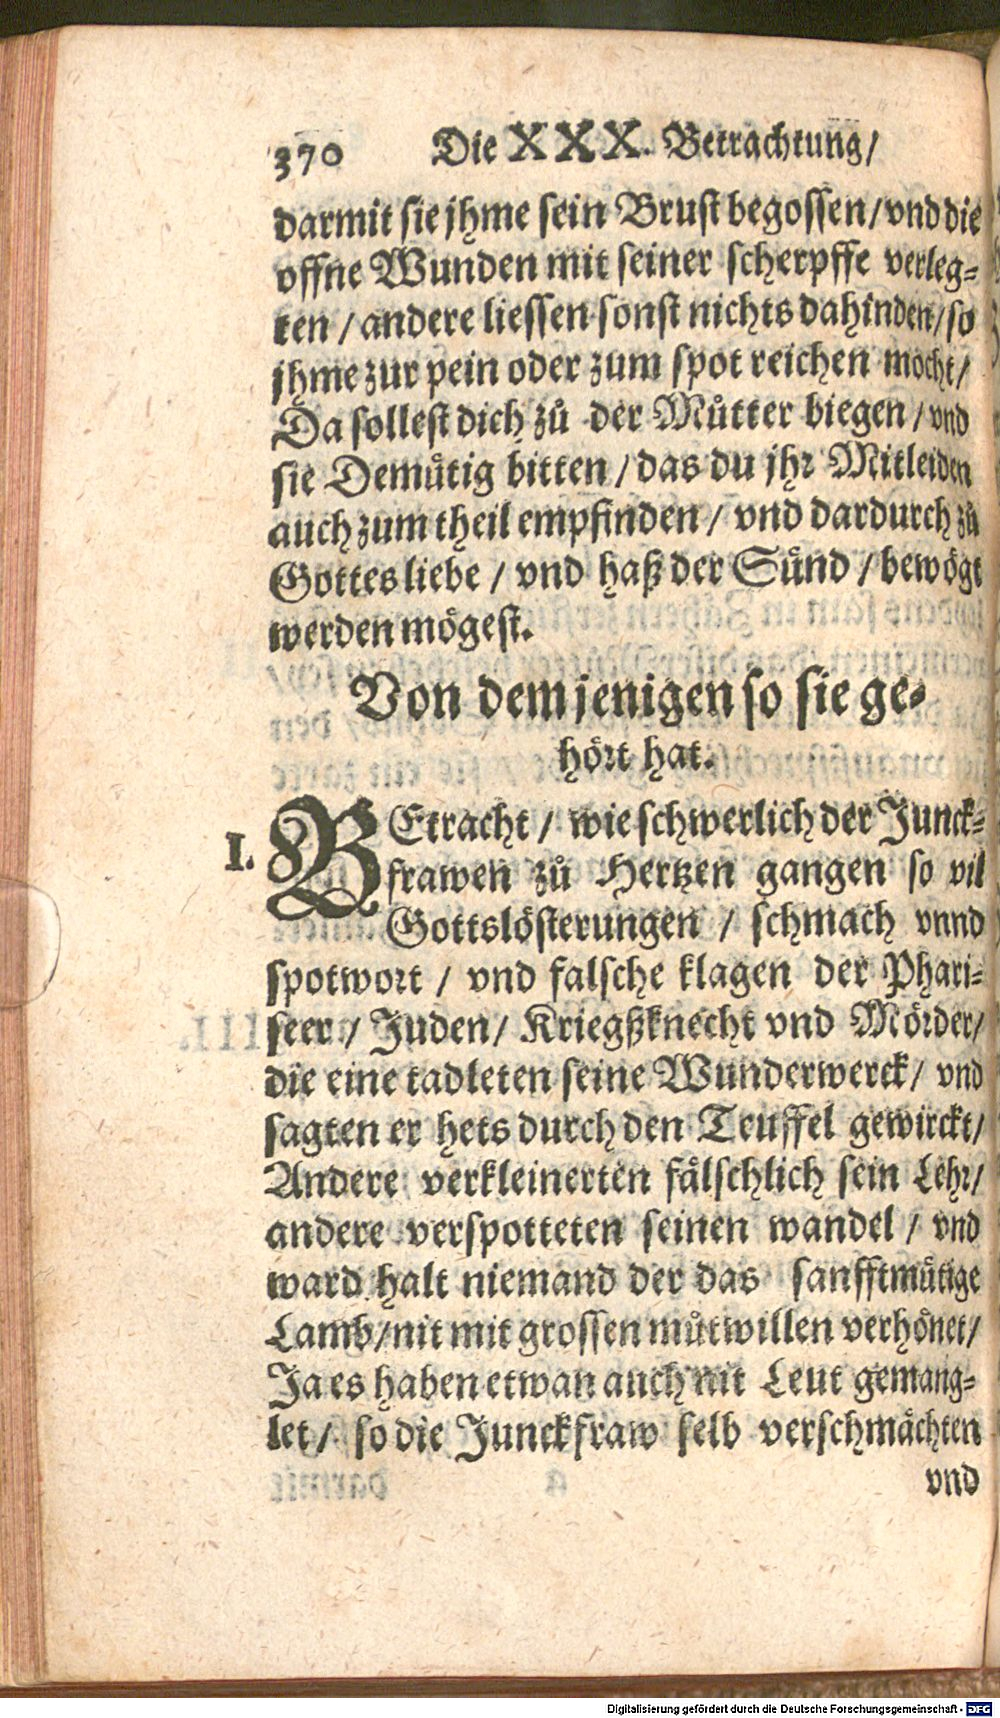 370 Die XXX. Betrachtung/
darmit sie jhme sein Brust begossen/vnd die
offne Wunden mit seiner scherpffe verleg-
ten/andere liessen sonst nichts dahinden/so
jhme zur pein oder zum spot reichen mocht/
Da sollest dich zů der Můtter biegen/vnd
sie Demütig bitten/das du jhr Mitleiden
auch zum theil empfinden/vnd dardurch zů
Gottes liebe/vnd haß der Sünd/bewögt
werden mögest.
Von dem jenigen so sie ge-
hört hat.
I. BEtracht/wie schwerlich der Junck-
frawen zů Hertzen gangen so vil
Gottslösterungen/schmach vnnd
spotwort/vnd falsche klagen der Phari-
seer/Juden/Kriegßknecht vnd Mörder/
die eine tadleten seine Wunderwerck/vnd
sagten er hets durch den Teuffel gewirckt/
Andere verkleinerten fälschlich sein Lehr/
andere verspotteten seinen wandel/vnd
ward halt niemand der das sanfftmütige
Lamb/nit mit grossen můtwillen verhönet/
Ja es haben etwan auch nit Leut gemang-
let/so die Junckfraw selb verschmächten
vnd
Digitalisierung gefördert durch die Deutsche Forschungsgemeinschaft - DFG